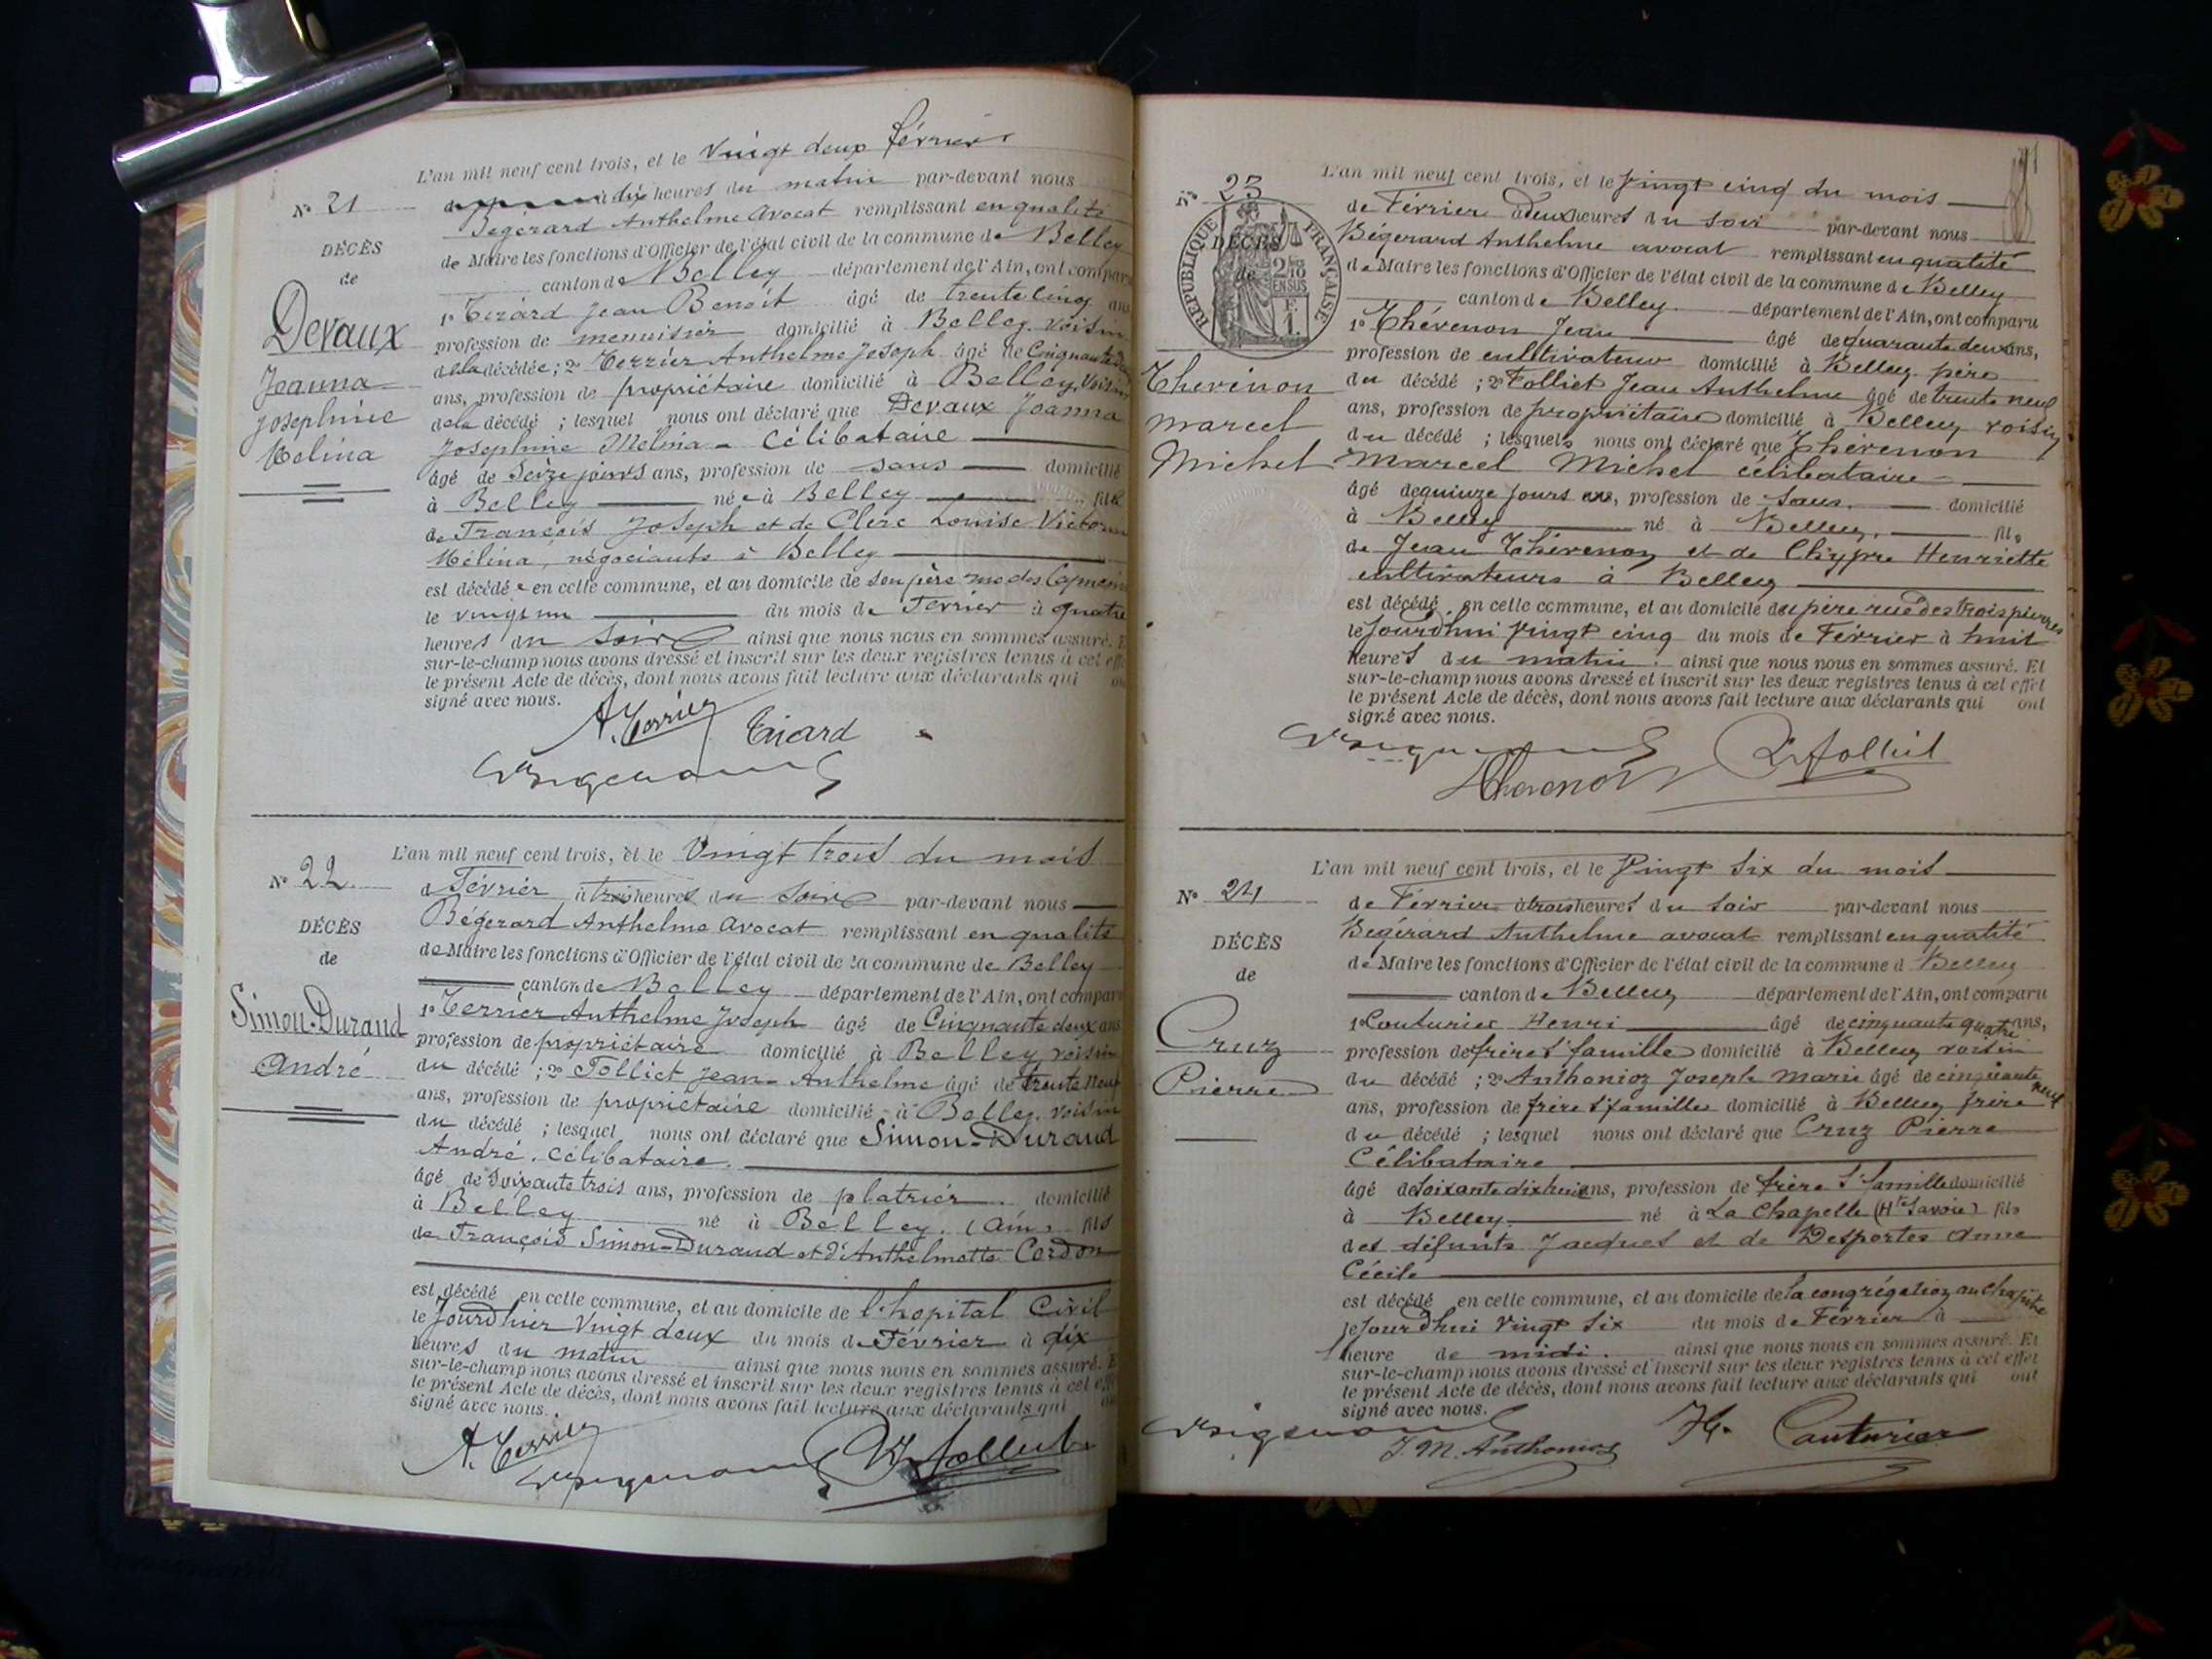 L'an mil neuf cent trois, et le vingt deux février
à dix heures du matin par-devant nous
Nº 21
Bégerard Anthelme avocat remplissant en qualité
DÉCÈS
de Maire les fonctions d'Officier de l'état civil de la commune de Belley
de
canton de Belley département de l'Ain, ont comparu
1º Tirard Jean Benoît âgé de trente cinq ans
Devaux
profession de menuisier domicilié à Belley voisin
de la décédée ; 2º Terrier Anthelme Joseph âgé de Cinquante deux
Joanna
ans, profession de propriétaire domicilié à Belley, voisin
Joséphine
de la décédé ; lesquel nous ont déclaré que Devaux Joanna
Mélina
Joséphine Mélina - Célibataire
âgé de Seize jours ans, profession de sans domicilié
à Belley née à Belley fille
de François Joseph et de Clerc Louise Victorine
Mélina, négociants à Belley
est décédée en cette commune, et au domicile de son père rue des
le vingt un du mois de Février à quatre
heures du soir ainsi que nous nous en sommes assuré. Et
sur-le-champ nous avons dressé et inscrit sur les deux registres tenus à cet effet
le présent Acte de décès, dont nous avons fait lecture aux déclarants qui ont
signé avec nous.
A. Terrier Tirard
L'an mil neuf cent trois, et le Vingt trois du mois
Nº 22
de Février à trois heures du soir par-devant nous
DÉCÈS
Bégerard Anthelme avocat remplissant en qualité
de
de Maire les fonctions d'Officier de l'état civil de la commune de Belley
canton de Belley département de l'Ain, ont comparu
Simon-Durand
1º Terrier Anthelme Joseph âgé de Cinquante deux ans
André
profession de propriétaire domicilié à Belley, voisin
du décédé ; 2º Folliet Jean-Anthelme âgé de trente neuf
ans, profession de propriétaire domicilié à Belley, voisin
du décédé ; lesquel nous ont déclaré que Simon-Durand
André. Célibataire.
âgé de soixante trois ans, profession de platrier domicilié
à Belley né à Belley. (Ain) fils
de François Simon-Durand et d'Anthelmette Cordon
est décédé en cette commune, et au domicile de l'hopital Civil
le Jourd'hier Vingt deux du mois de Février à dix
heures du matin ainsi que nous nous en sommes assuré. Et
sur-le-champ nous avons dressé et inscrit sur les deux registres tenus à cet effet
le présent Acte de décès, dont nous avons fait lecture aux déclarants qui ont
signé avec nous.
A. Terrier Folliet
L'an mil neuf cent trois, et le Vingt cinq du mois
Nº 23
de Février à deux heures du soir par-devant nous
RÉPUBLIQUE FRANÇAISE
2/10 EN SUS
F. 1.
DÉCÈS
de
Bégerard Anthelme avocat remplissant en qualité
de Maire les fonctions d'Officier de l'état civil de la commune de Belley
canton de Belley département de l'Ain, ont comparu
1º Thévenon Jean âgé de quarante deux ans,
profession de cultivateur domicilié à Belley père
Thevenon
du décédé ; 2º Folliet Jean Anthelme âgé de trente neuf
Marcel
ans, profession de propriétaire domicilié à Belley voisin
du décédé ; lesquels nous ont déclaré que Thévenon
Michel
Marcel Michel célibataire
âgé de quinze jours ans, profession de sans domicilié
à Belley né à Belley, fils
de Jean Thévenon et de Chypre Henriette
cultivateurs à Belley
est décédé en cette commune, et au domicile du père rue des trois pierres
le Jourd'hui Vingt cinq du mois de Février à huit
heures du matin. ainsi que nous nous en sommes assuré. Et
sur-le-champ nous avons dressé et inscrit sur les deux registres tenus à cet effet
le présent Acte de décès, dont nous avons fait lecture aux déclarants qui ont
signé avec nous.
Thevenon Folliet
L'an mil neuf cent trois, et le Vingt six du mois
Nº 24
de Février à trois heures du soir par-devant nous
DÉCÈS
Bégérard Anthelme avocat remplissant en qualité
de
de Maire les fonctions d'Officier de l'état civil de la commune d Belley
canton de Belley département de l'Ain, ont comparu
Cruz
1º Couturier Henri âgé de cinquante quatre ans,
profession de frère Ste famille domicilié à Belley voisin
Pierre
du décédé ; 2º Anthonioz Joseph Marie âgé de cinquante neuf
ans, profession de frère Ste famille domicilié à Belley frère
du décédé ; lesquel nous ont déclaré que Cruz Pierre
Célibataire
âgé de soixante dix huit ans, profession de frère Ste famille domicilié
à Belley né à La Chapelle (Hte Savoie) fils
des défunts Jacques et de Desportes Anne
Cécile
est décédé en cette commune, et au domicile de la congrégation au chapitre
le Jourd'hui Vingt six du mois de Février à
heure de midi. ainsi que nous nous en sommes assuré. Et
sur-le-champ nous avons dressé et inscrit sur les deux registres tenus à cet effet
le présent Acte de décès, dont nous avons fait lecture aux déclarants qui ont
signé avec nous.
J. M. Anthonioz H. Couturier